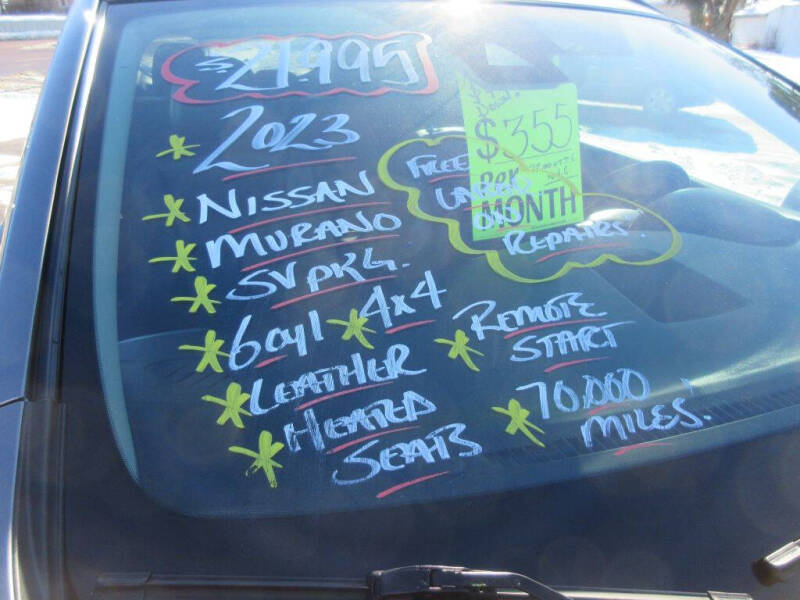 $21995
2023
NISSAN
MURANO
SV PKG.
6CYL 4x4
LEATHER
HEATED
SEATS
$355
PER
MONTH
FREE
ON
REPAIRS.
REMOTE
START
70,000
MILES.